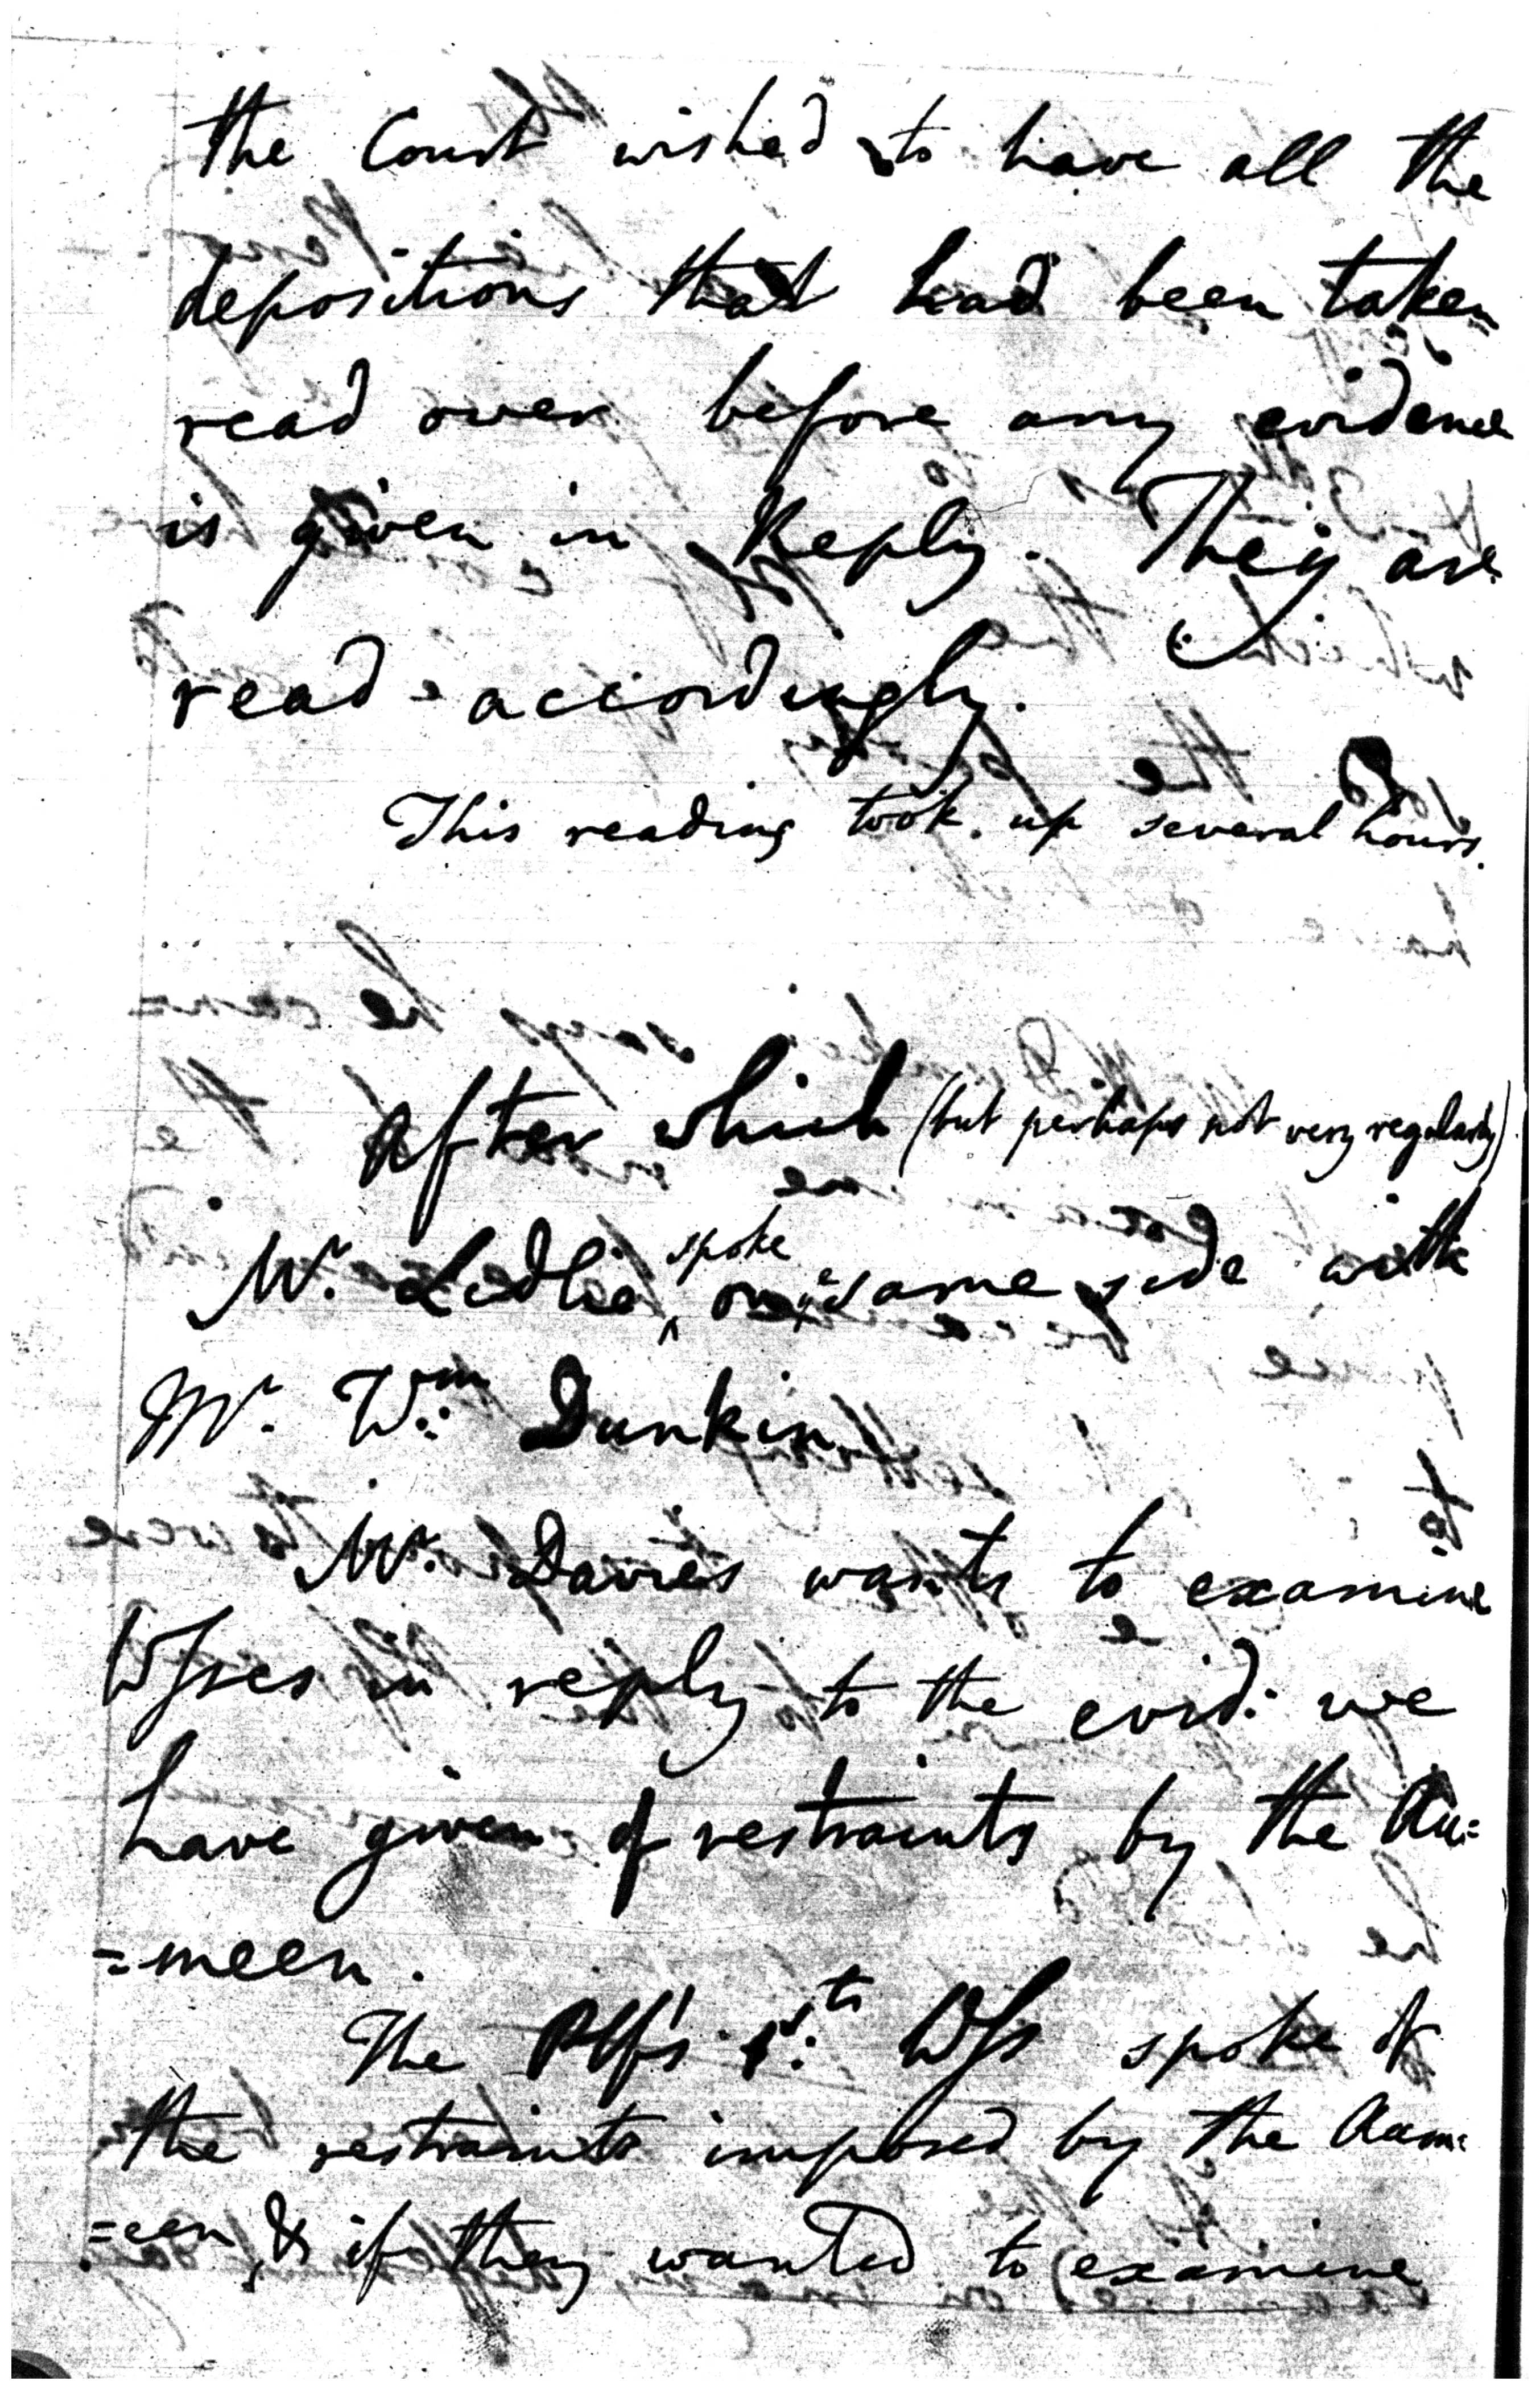 the Court wished to have all the
depositions that had been taken
read over before any evidence
is given in Reply. They are
read accordingly.
This reading took up several hours.
After which (but perhaps not very regularly)
Mr. Ledlie, spoke on ye same side with
Mr. Wm. Dunkin
Mr. Davies wants to examine
Wsses in reply to the evid: we
have given of restraints by the Au=
=meen.
The Plf's Wss spoke of
the restraints imposed by the Aum=
=een, & if they wanted to examine